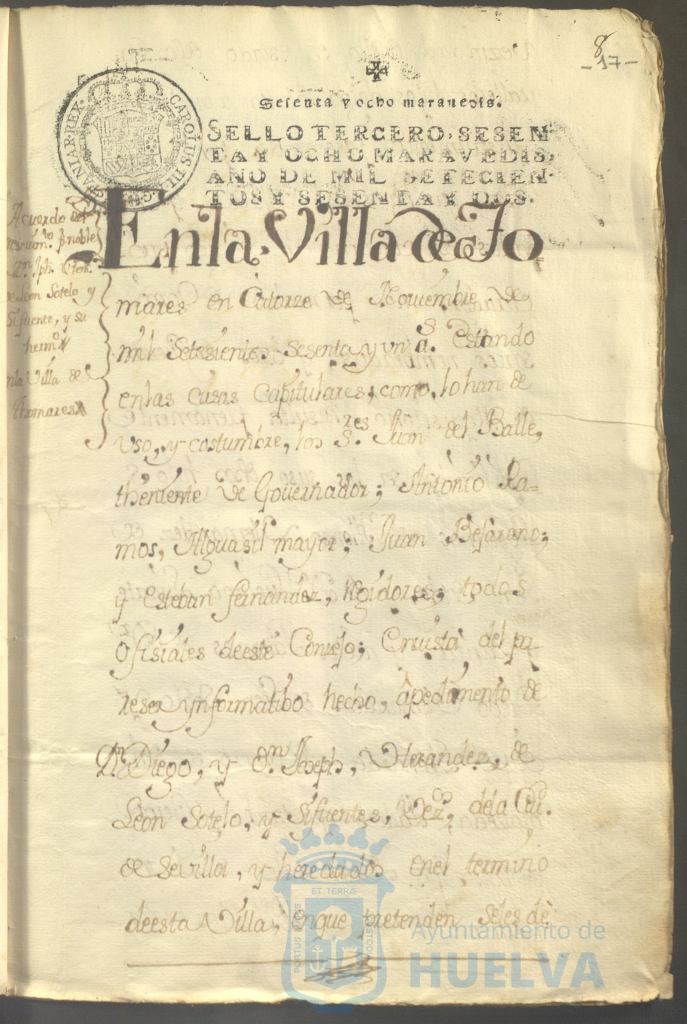 8
-17-
Sesenta y ocho maravedis.
SELLO TERCERO, SESEN-
TA Y OCHO MARAVEDIS,
AÑO DE MIL SETECIEN-
TOS Y SESENTA Y DOS.
CAROLUS III
HISPANIAR. REX
Acuerdo de
noble
Dn. Jph.
de Leon Sotelo y
Sifuente, y su
hermo.
en la Villa de
thomares
En la Villa de To
mares en Catorze de Noviembre de
mil Setezientos sesenta y un as. estando
en las casas Capitulares, como lo han de
uso, y costumbre, los Sres. Juan del Balle,
theniente de Governador; Antonio Ra-
mos, Alguasil mayor; Juan Bejarano;
y Esteban fernandez, Regidores; todos
Ofisiales de este Consejo; En vista del pa
reser ynformatibo hecho, apedimento de
Dn. Diego, y Dn. Joseph, de
Leon Sotelo, y Sifuentes, vezos. de la Ciu.
de Sevilla, y heredados en el termino
de esta Villa, en que pretenden se les dè
ET TERRÆ
PORTUS MARIS
CUSTODIA
Ayuntamiento de
HUELVA